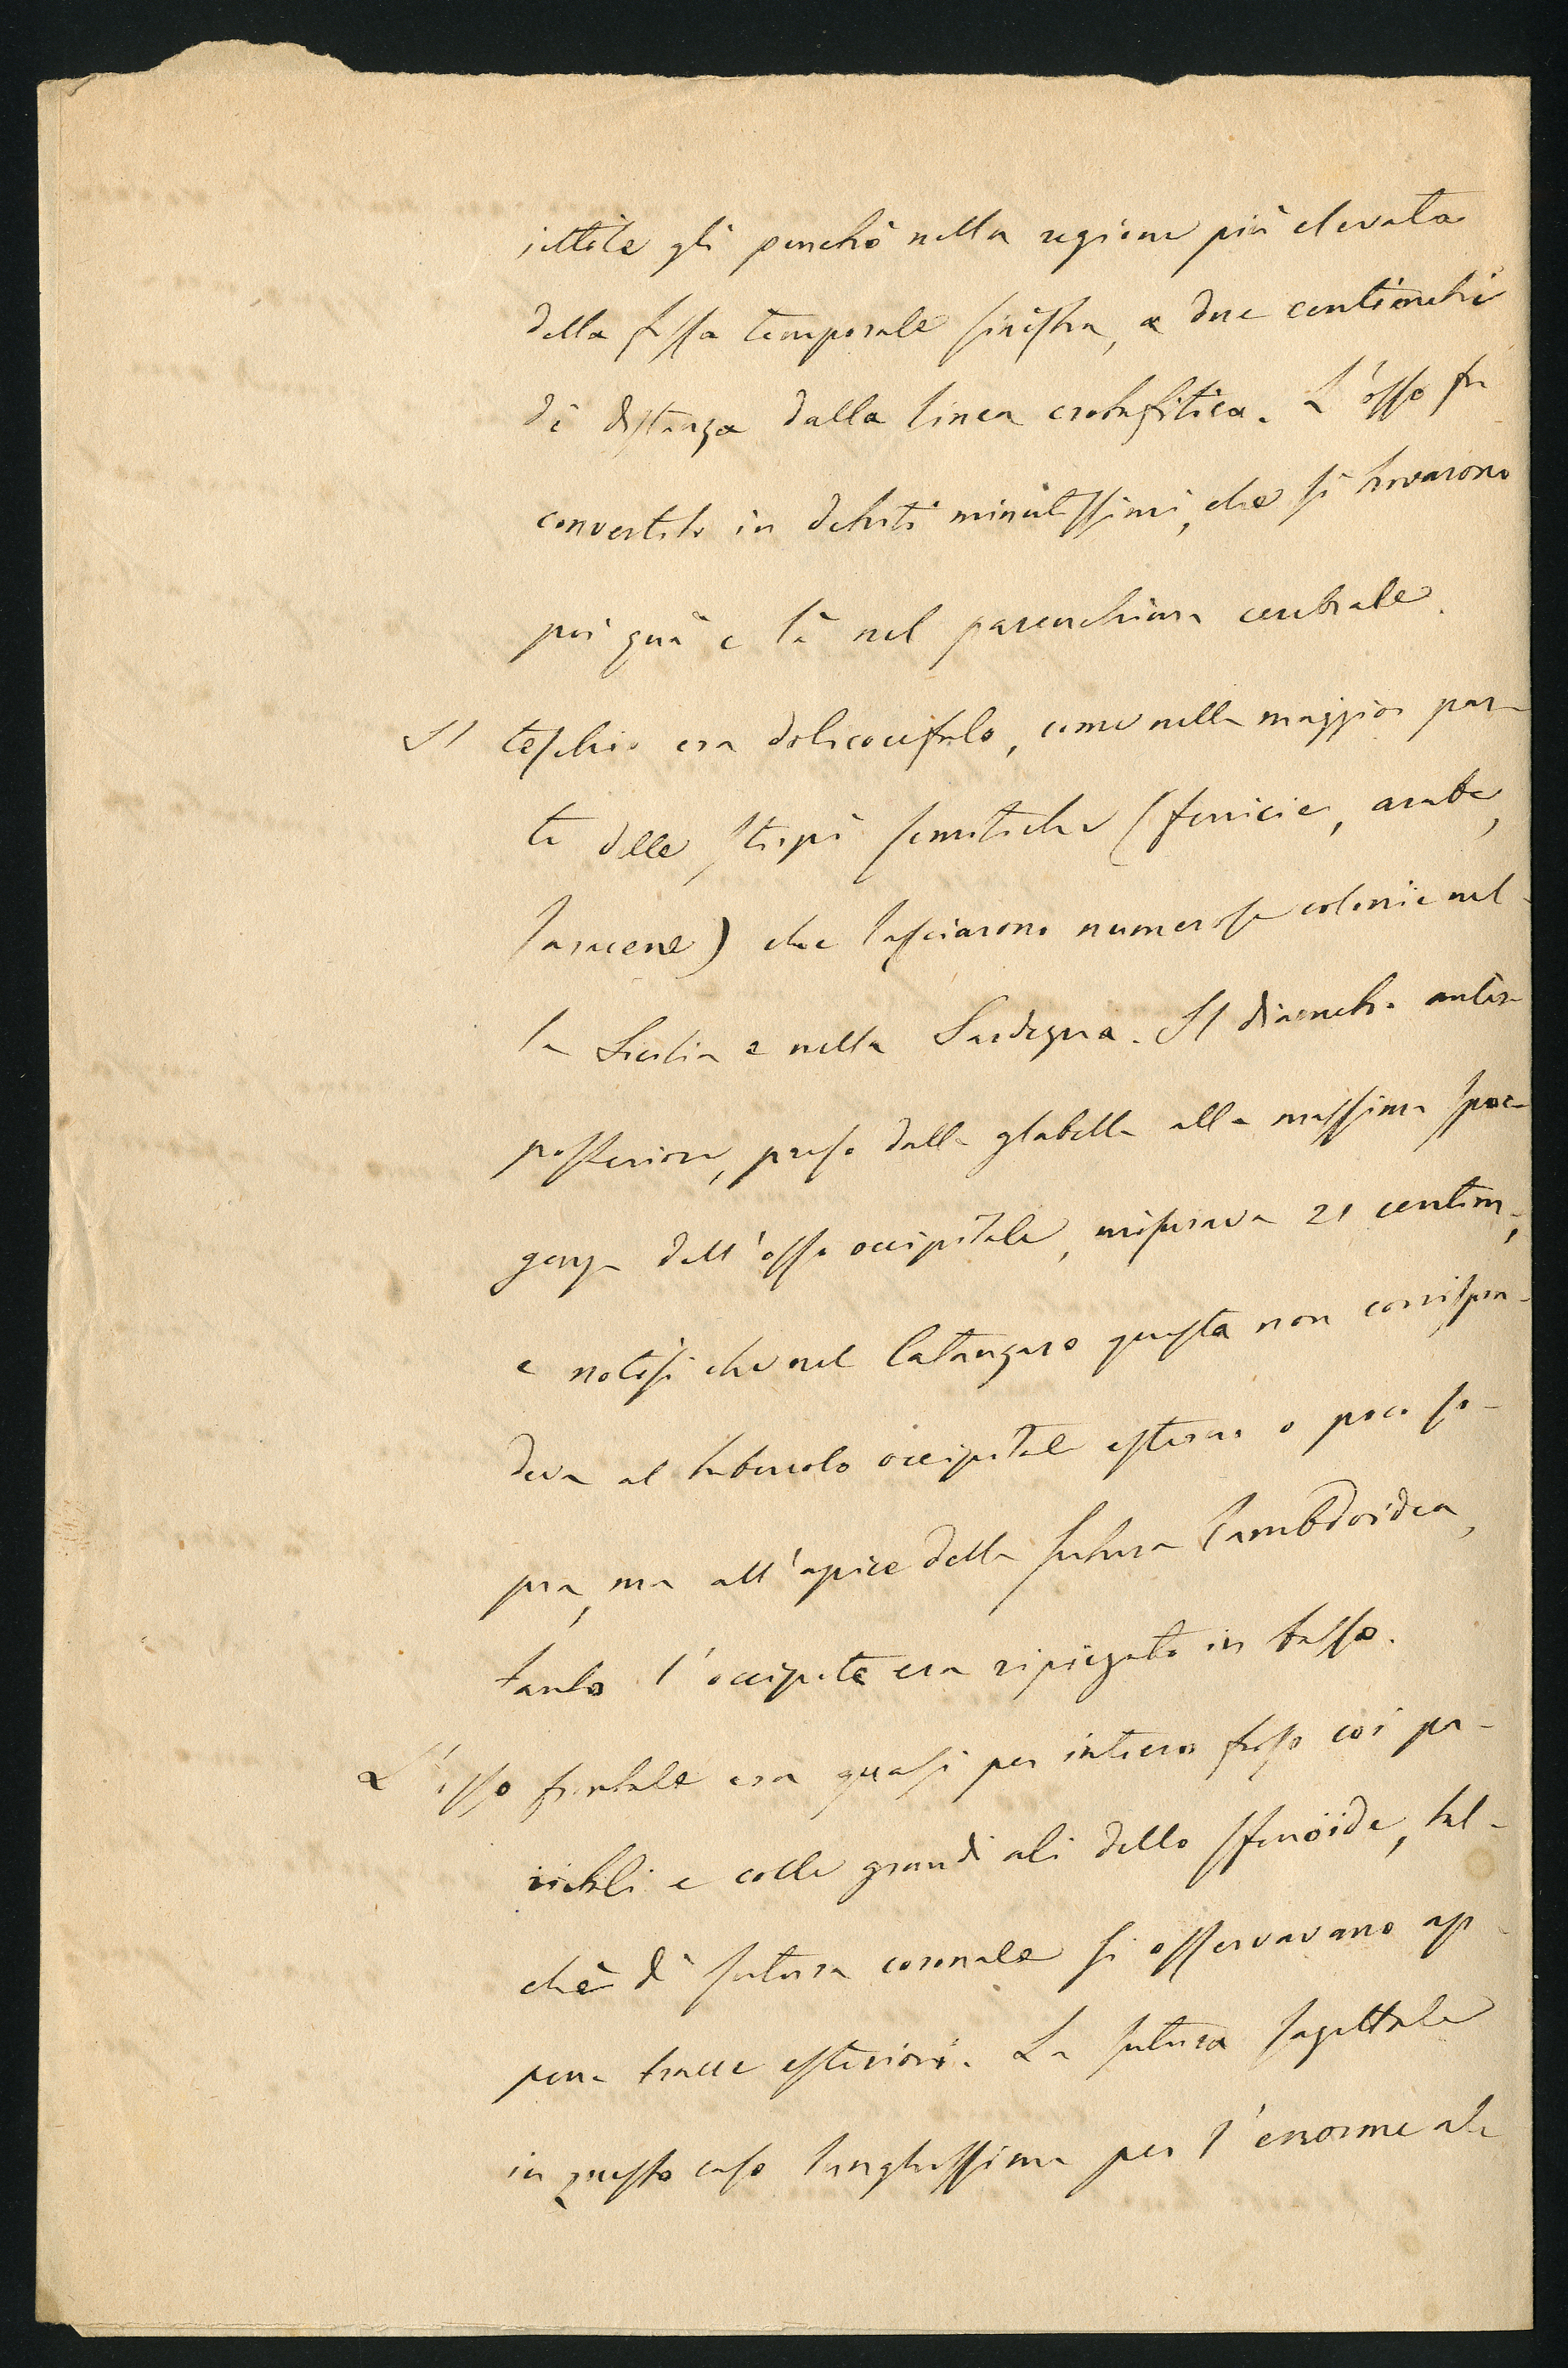 iettile gli penetrò nella regione più elevata
della fossa temporale sinistra, a due centimetri
di distanza dalla linea crotafitica. L'osso fu
convertito in detriti minutissimi, che si trovarono
poi quà e là nel parenchima cerebrale.
Il teschio era dolicocefalo, come nella maggior par-
te delle stirpi semitiche (fenicie, arabe,
saracene) che lasciarono numerose colonie nel-
la Sicilia e nella Sardegna. Il diametro antero-
posteriore, preso dalla glabella alla massima spor-
genza dell'osso occipitale, misurava 21 centim.,
e notisi che nel Catanzaro questa non corrispon-
deva al tubercolo occipitale esterno o poco so-
pra, ma all'apice della sutura lambdoidea,
tanto l'occipite era ripiegato in basso.
L'osso frontale era quasi per intero fuso coi pa-
rietali e colle grandi ali dello sfenoide, tal-
chè di sutura coronale si osservavano ap-
pena tracce esteriori. La sutura sagittale
in questo caso lunghissima per l'enorme al-